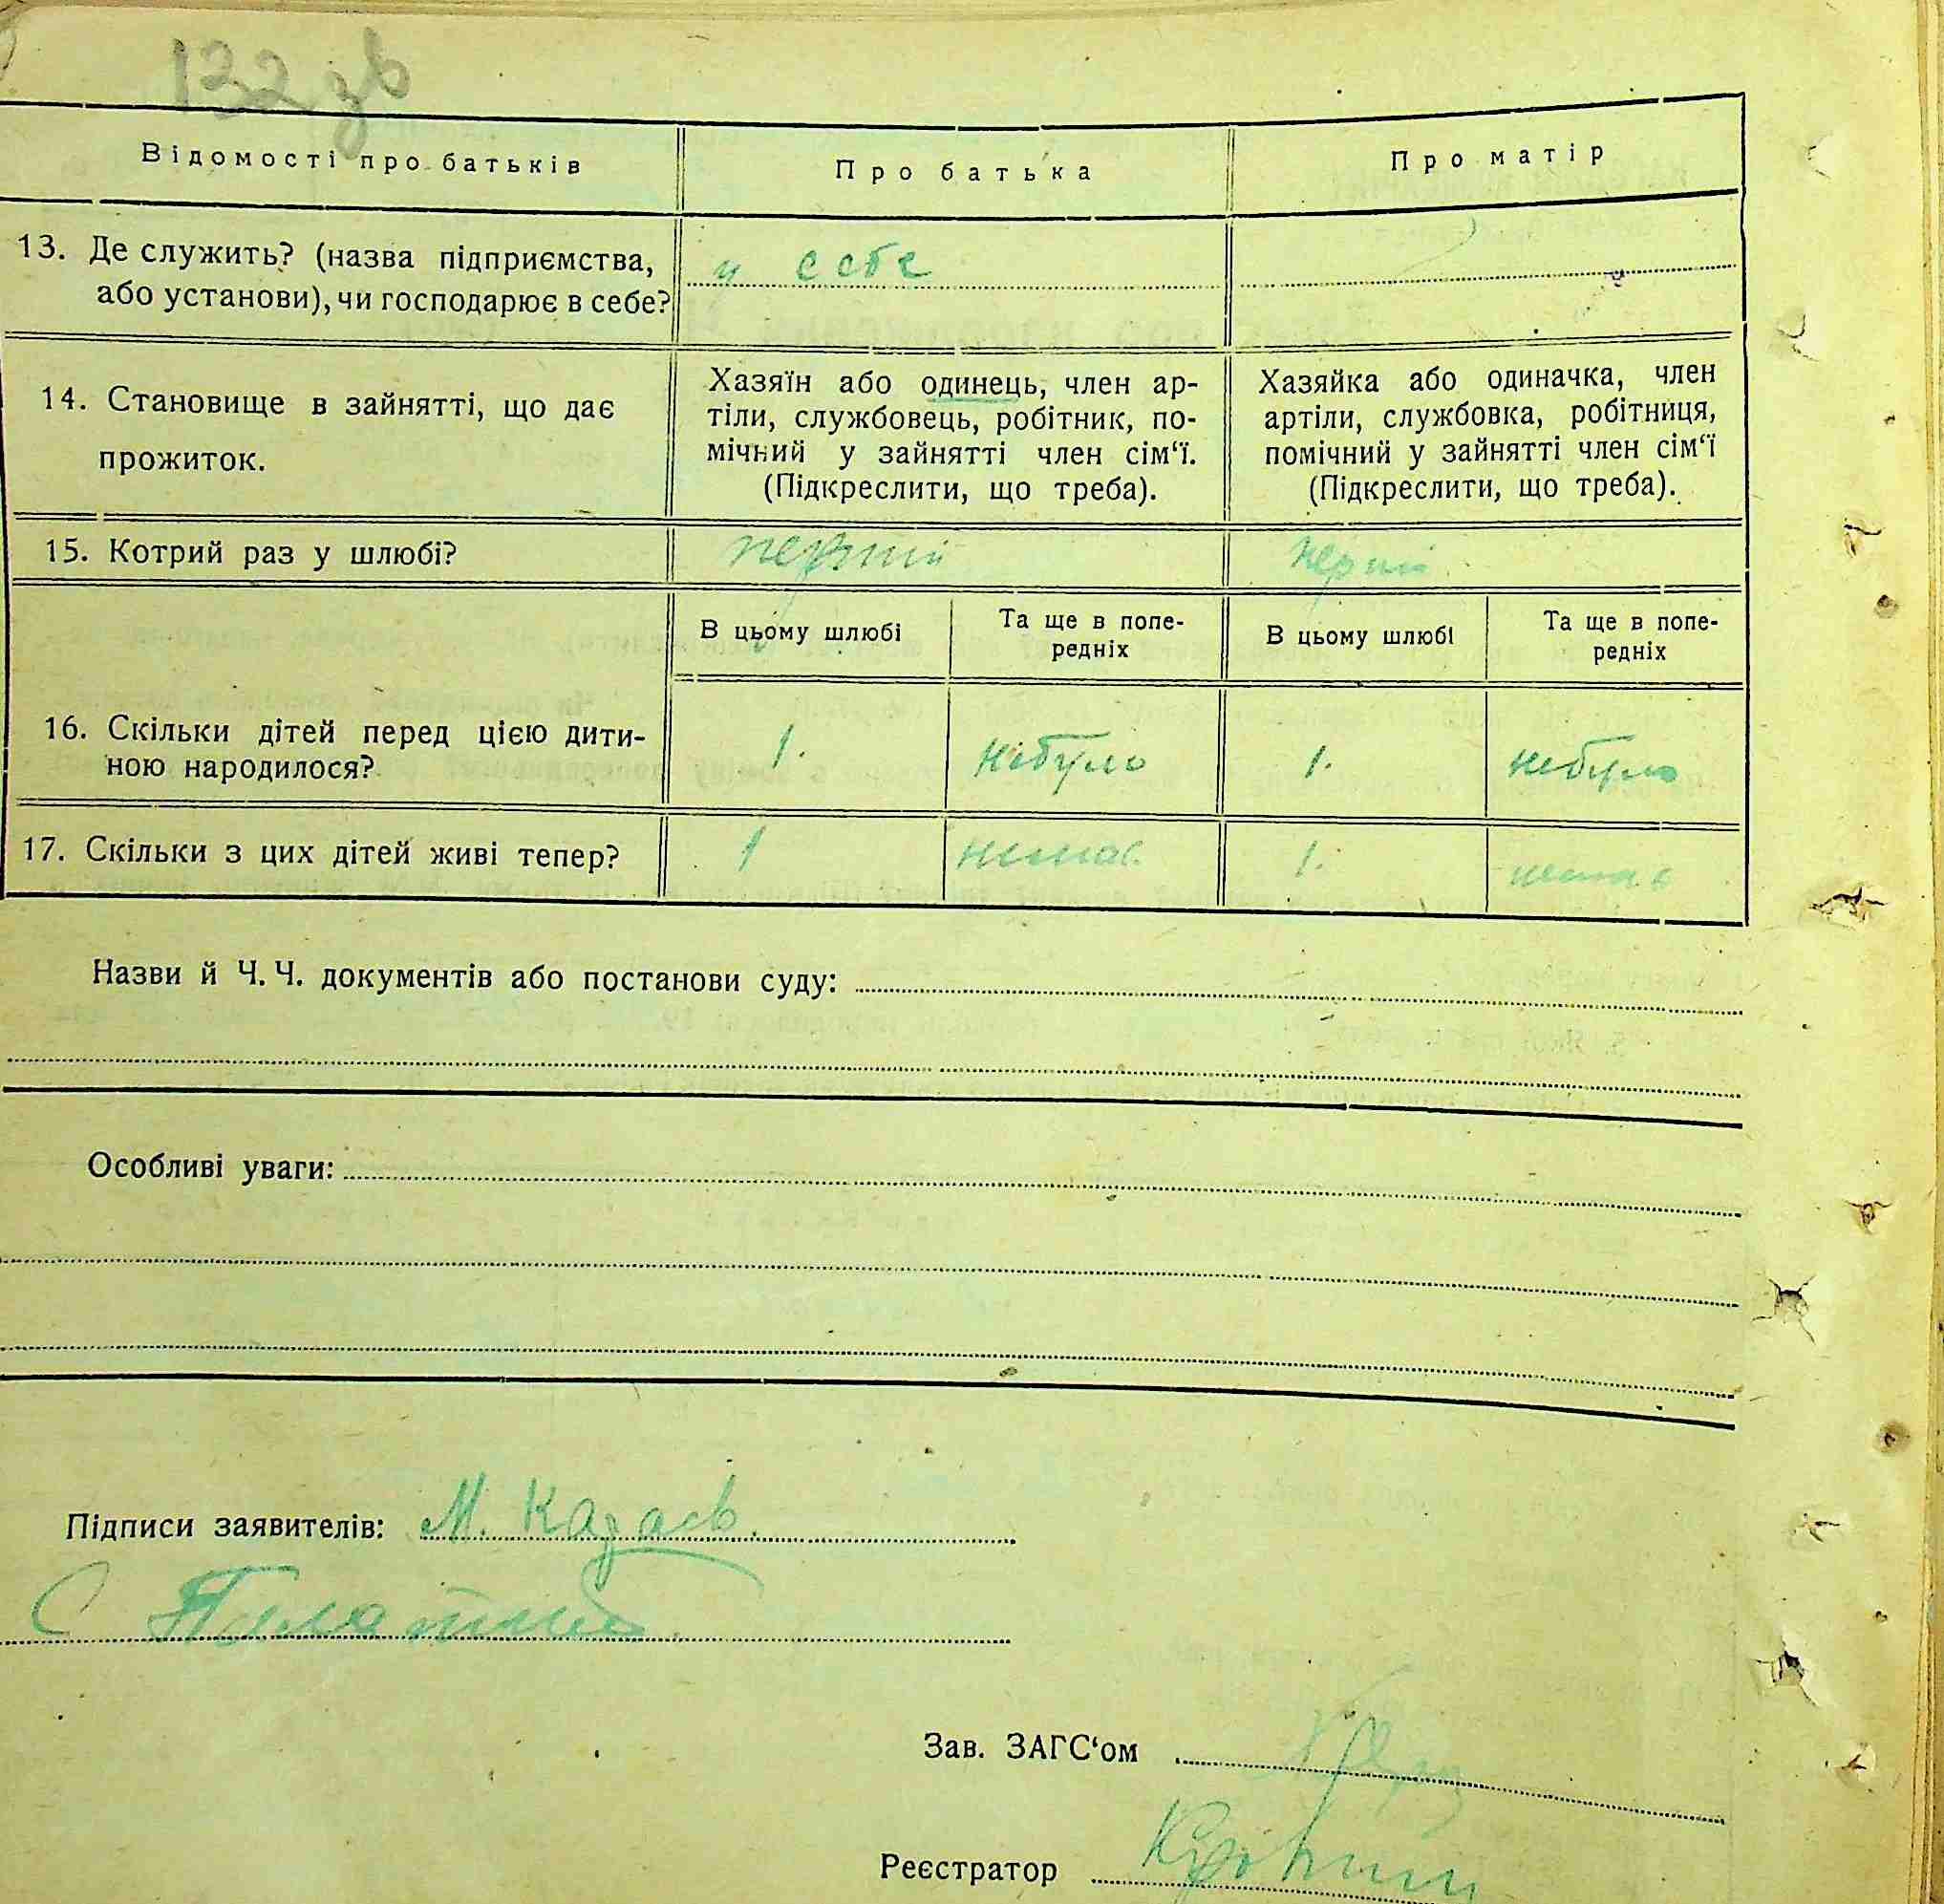 132 зв
Відомості про батьків
Про батька
Про матір
13. Де служить? (назва підприємства,
або установи), чи господарює в себе?
у себе
14. Становище в зайнятті, що дає
прожиток.
Хазяїн або одинець, член ар-
тіли, службовець, робітник, по-
мічний у зайнятті член сім‘ї.
(Підкреслити, що треба).
Хазяйка або одиначка, член
артіли, службовка, робітниця,
помічний у зайнятті член сім‘ї
(Підкреслити, що треба).
15. Котрий раз у шлюбі?
перший
перший
В цьому шлюбі
Та ще в попе-
редніх
В цьому шлюбі
Та ще в попе-
редніх
16. Скільки дітей перед цією дити-
ною народилося?
1.
небуло
1.
небуло
17. Скільки з цих дітей живі тепер?
1
немає
1.
немає
Назви й Ч. Ч. документів або постанови суду:
Особливі уваги:
Підписи заявителів: М.
Зав. ЗАГС‘ом
Реєстратор